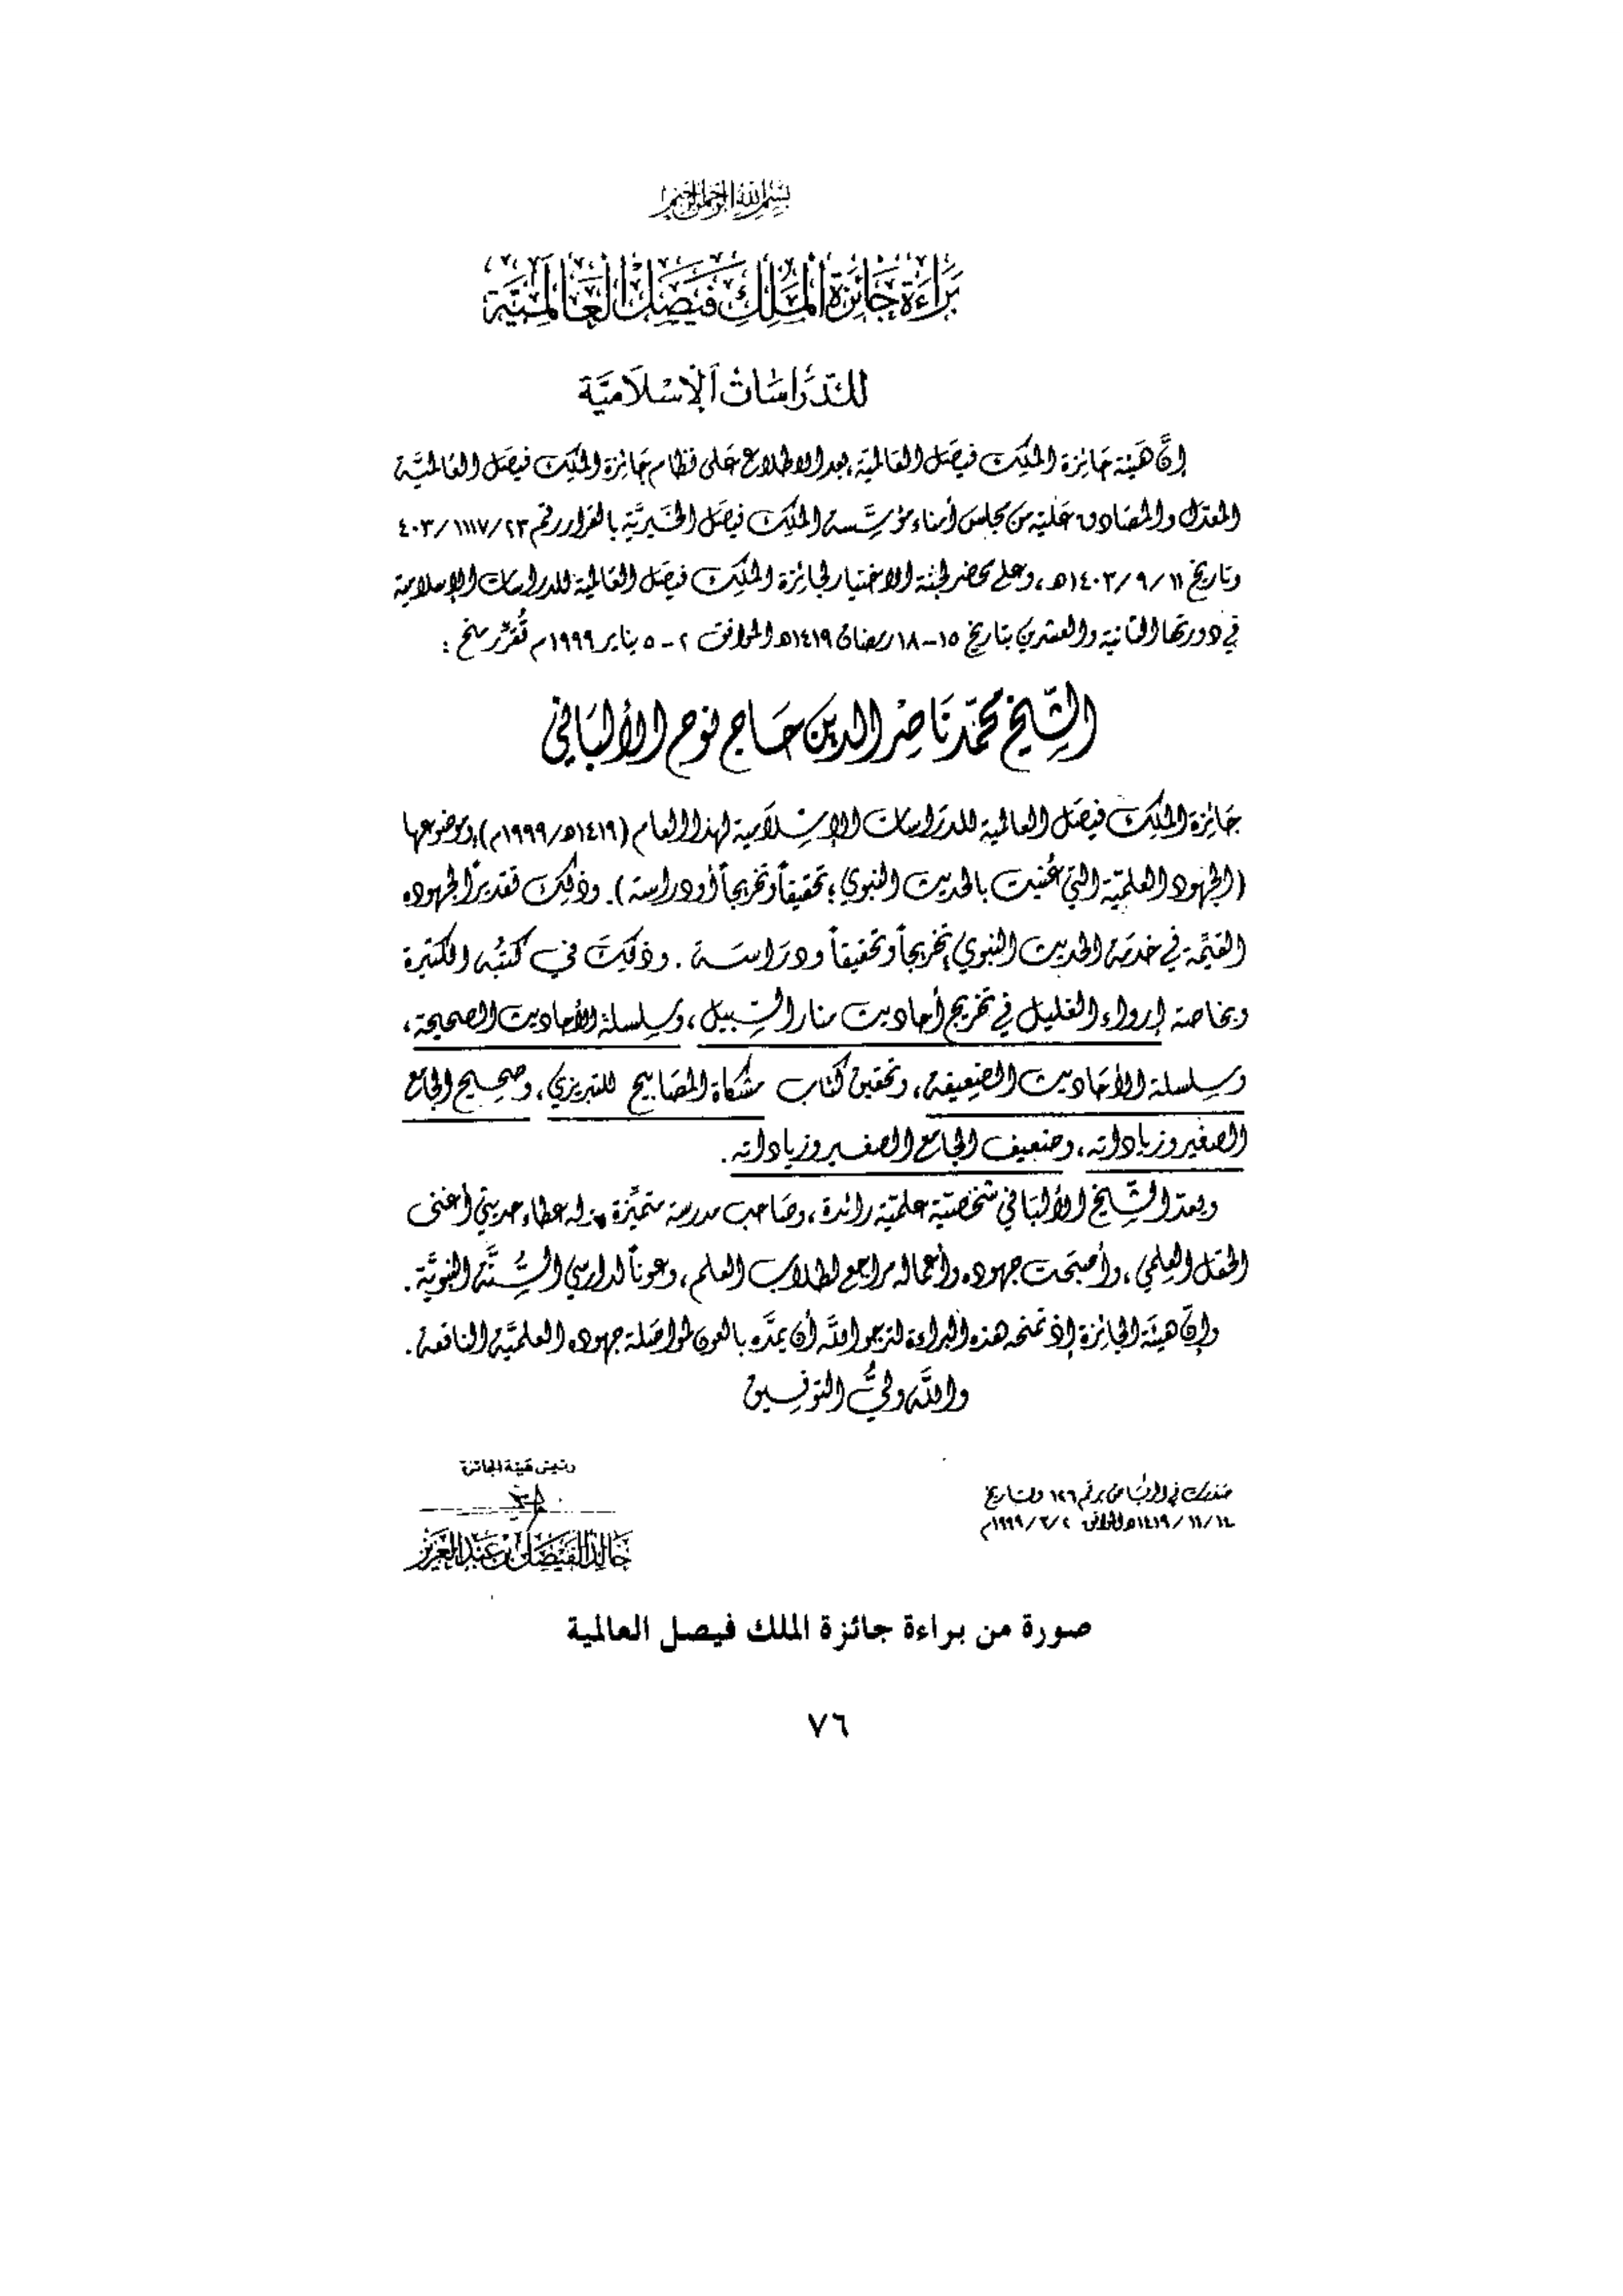 بسم الله الرحمن الرحيم
بَرَاءَة جَائزة المَلِك فَيصَل العَالَميَّة
للدّراسَات الإسْلاَميَّة
إنَّ هَيئة جَائزة الملك فيصَل العَالمية، بعد الاطلاع عَلى نظام جَائزة الملك فيصَل العَالميَّة
المعدّل والمصَادق عَليه من مجلس أمناء مؤسَّسة الملك فيصَل الخَيريَّة بالقرار رقم ٤٠٣/١١١٧/٢٣
وتاريخ ١٤٠٣/٩/١١هـ، وعلى محضر لجنة الاختيار لجائزة الملك فيصَل العَالمية للدراسات الإسلامية
في دورتها الثانية والعشرين بتاريخ ١٥-١٨ رمضان ١٤١٩هـ الموافق ٢-٥ يناير ١٩٩٩م تُقرِّر منح :
الشّيخ محمّد نَاصِر الدين حَاج نوح الألبَاني
جَائزة الملك فيصَل العالمية للدرَاسات الإسلاَمية لهذا العام (١٤١٩هـ/١٩٩٩م)، وموضوعها
(الجهود العلميّة التي عُنيت بالحديث النبوي؛ تحقيقاً وتخريجاً أو دراسة). وذلك تقديراً لجهوده
القيِّمة في خدمَة الحديث النبوي، تخريجاً وتحقيقاً ودرَاسَة. وذلكَ في كتبه الكثيرة
وبخاصة إرواء الغليل في تخريج أحاديث منار السّبيل، وسلسلة الأحاديث الصحيحة،
وسلسلة الأحَاديث الضعيفة، وتحقيق كتَاب مشكاة المصَابيح للتبريزي، وصحيح الجامع
الصغير وزياداته، وضعيف الجامع الصغير وزياداته.
ويعدّ الشّيخ الألبَاني شخصيّة علميّة رائدة، وصَاحب مدرسة متميِّزة، له عطاء حديثي أغنى
الحقل العِلمي، وأصبَحت جهوده وأعماله مراجع لطلاب العلم، وعوناً لدارسي السُّنَّة النبويَّة.
وإنّ هيئَة الجائزة إذ تمنحه هذه البراءة لترجو اللَّه أن يمدَّه بالعون لمواصَلة جهوده العلميَّة النافعة.
واللَّه وليُّ التوفيق
رئيس هَيئة الجائزة
صَدرت في الريَاض برقم ١٢٦ وتاريخ
١٤١٩/١١/١٤هـ الموافق ١٩٩٩/٣/٢م
خَالد الفَيصَل بن عَبد العَزيز
صورة من براءة جائزة الملك فيصل العالمية
٧٦